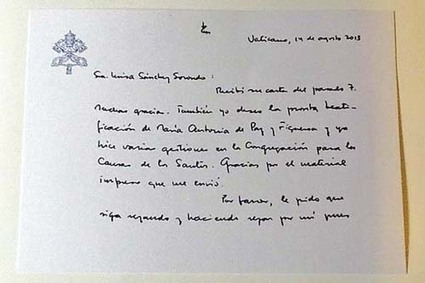 Vaticano, 14 de agosto 2013
Sra. Luisa Sánchez Sorondo:
Recibí su carta del pasado 7.
Muchas gracias. También yo deseo la pronta beati-
ficación de María Antonia de Paz y Figueroa y ya
hice varias gestiones en la Congregación para las
Causas de los Santos. Gracias por el material
impreso que me envió.
Por favor, le pido que
siga rezando y haciendo rezar por mí pues